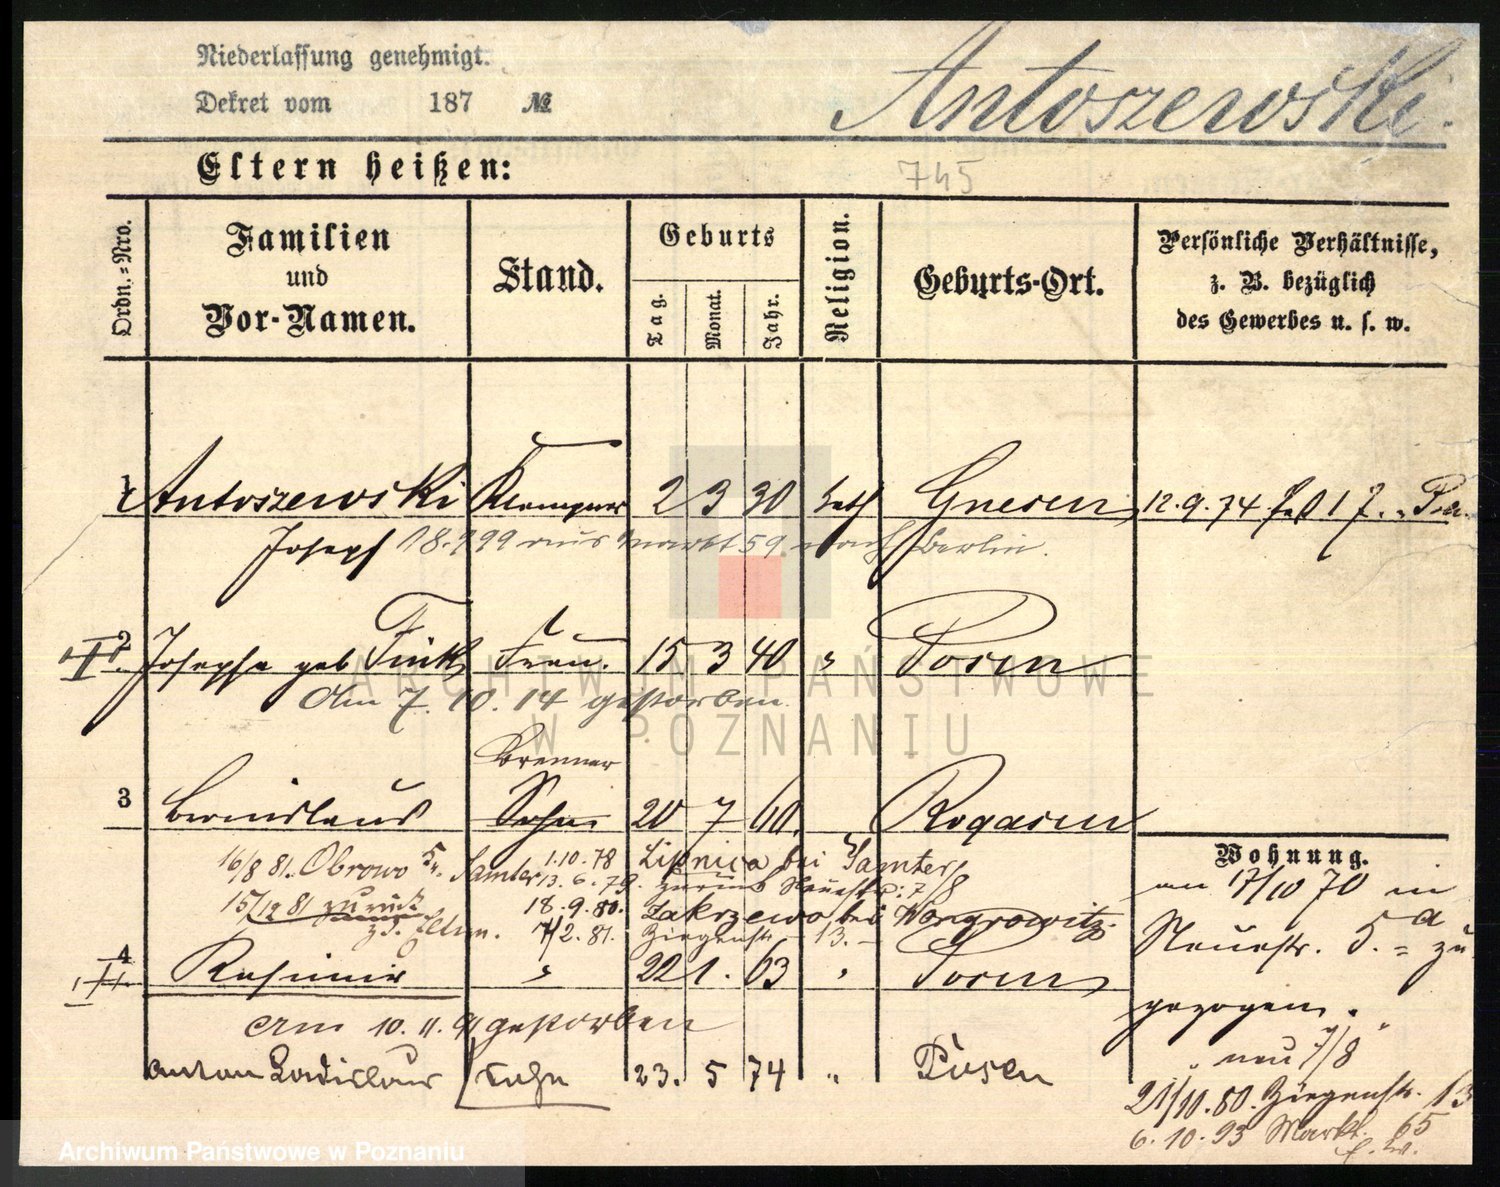 Niederlassung genehmigt.
Dekret vom 187 №
Antoszewski.
Eltern heißen:
745
Ordn.=Nro.
Familien
und
Vor-Namen.
Stand.
Geburts
Tag.
Monat.
Jahr.
Religion.
Geburts-Ort.
Persönliche Verhältnisse,
z. B. bezüglich
des Gewerbes u. s. w.
1 Antoszewski Klempner 2 3 30 kath Gnesen 12.9.74
Joseph 18.9 99 aus Markt 59. nach Berlin.
2 Josepha geb Fink Frau. 15 3 40 " Posen
Am 7. 10. 14 gestorben.
Brenner
3 Bronislaus Sohn 20 7 60. Rogasen
16/8 81. Obrowo Kr. Samter 1.10.78 Lipnica bei Samter
13.6.79. zurück Neuestr: 7/8
15/12 81 zurück 18.9.80. Zakrzewo bei Wongrowitz.
z. d. Eltern. 7/2.81. Ziegenstr. 13.
4 Kasimir " 22 1. 63 " Posen
Am 10. 11. 91 gestorben
Anton Ladislaus Sohn 23. 5 74 " Posen
Wohnung.
am 17/10 70 in
Neuestr. 5. a zu
gezogen.
neu 7/8
21/10.80. Ziegenstr. 13
6. 10. 93 Markt. 65
ARCHIWUM PAŃSTWOWE
W POZNANIU
Archiwum Państwowe w Poznaniu